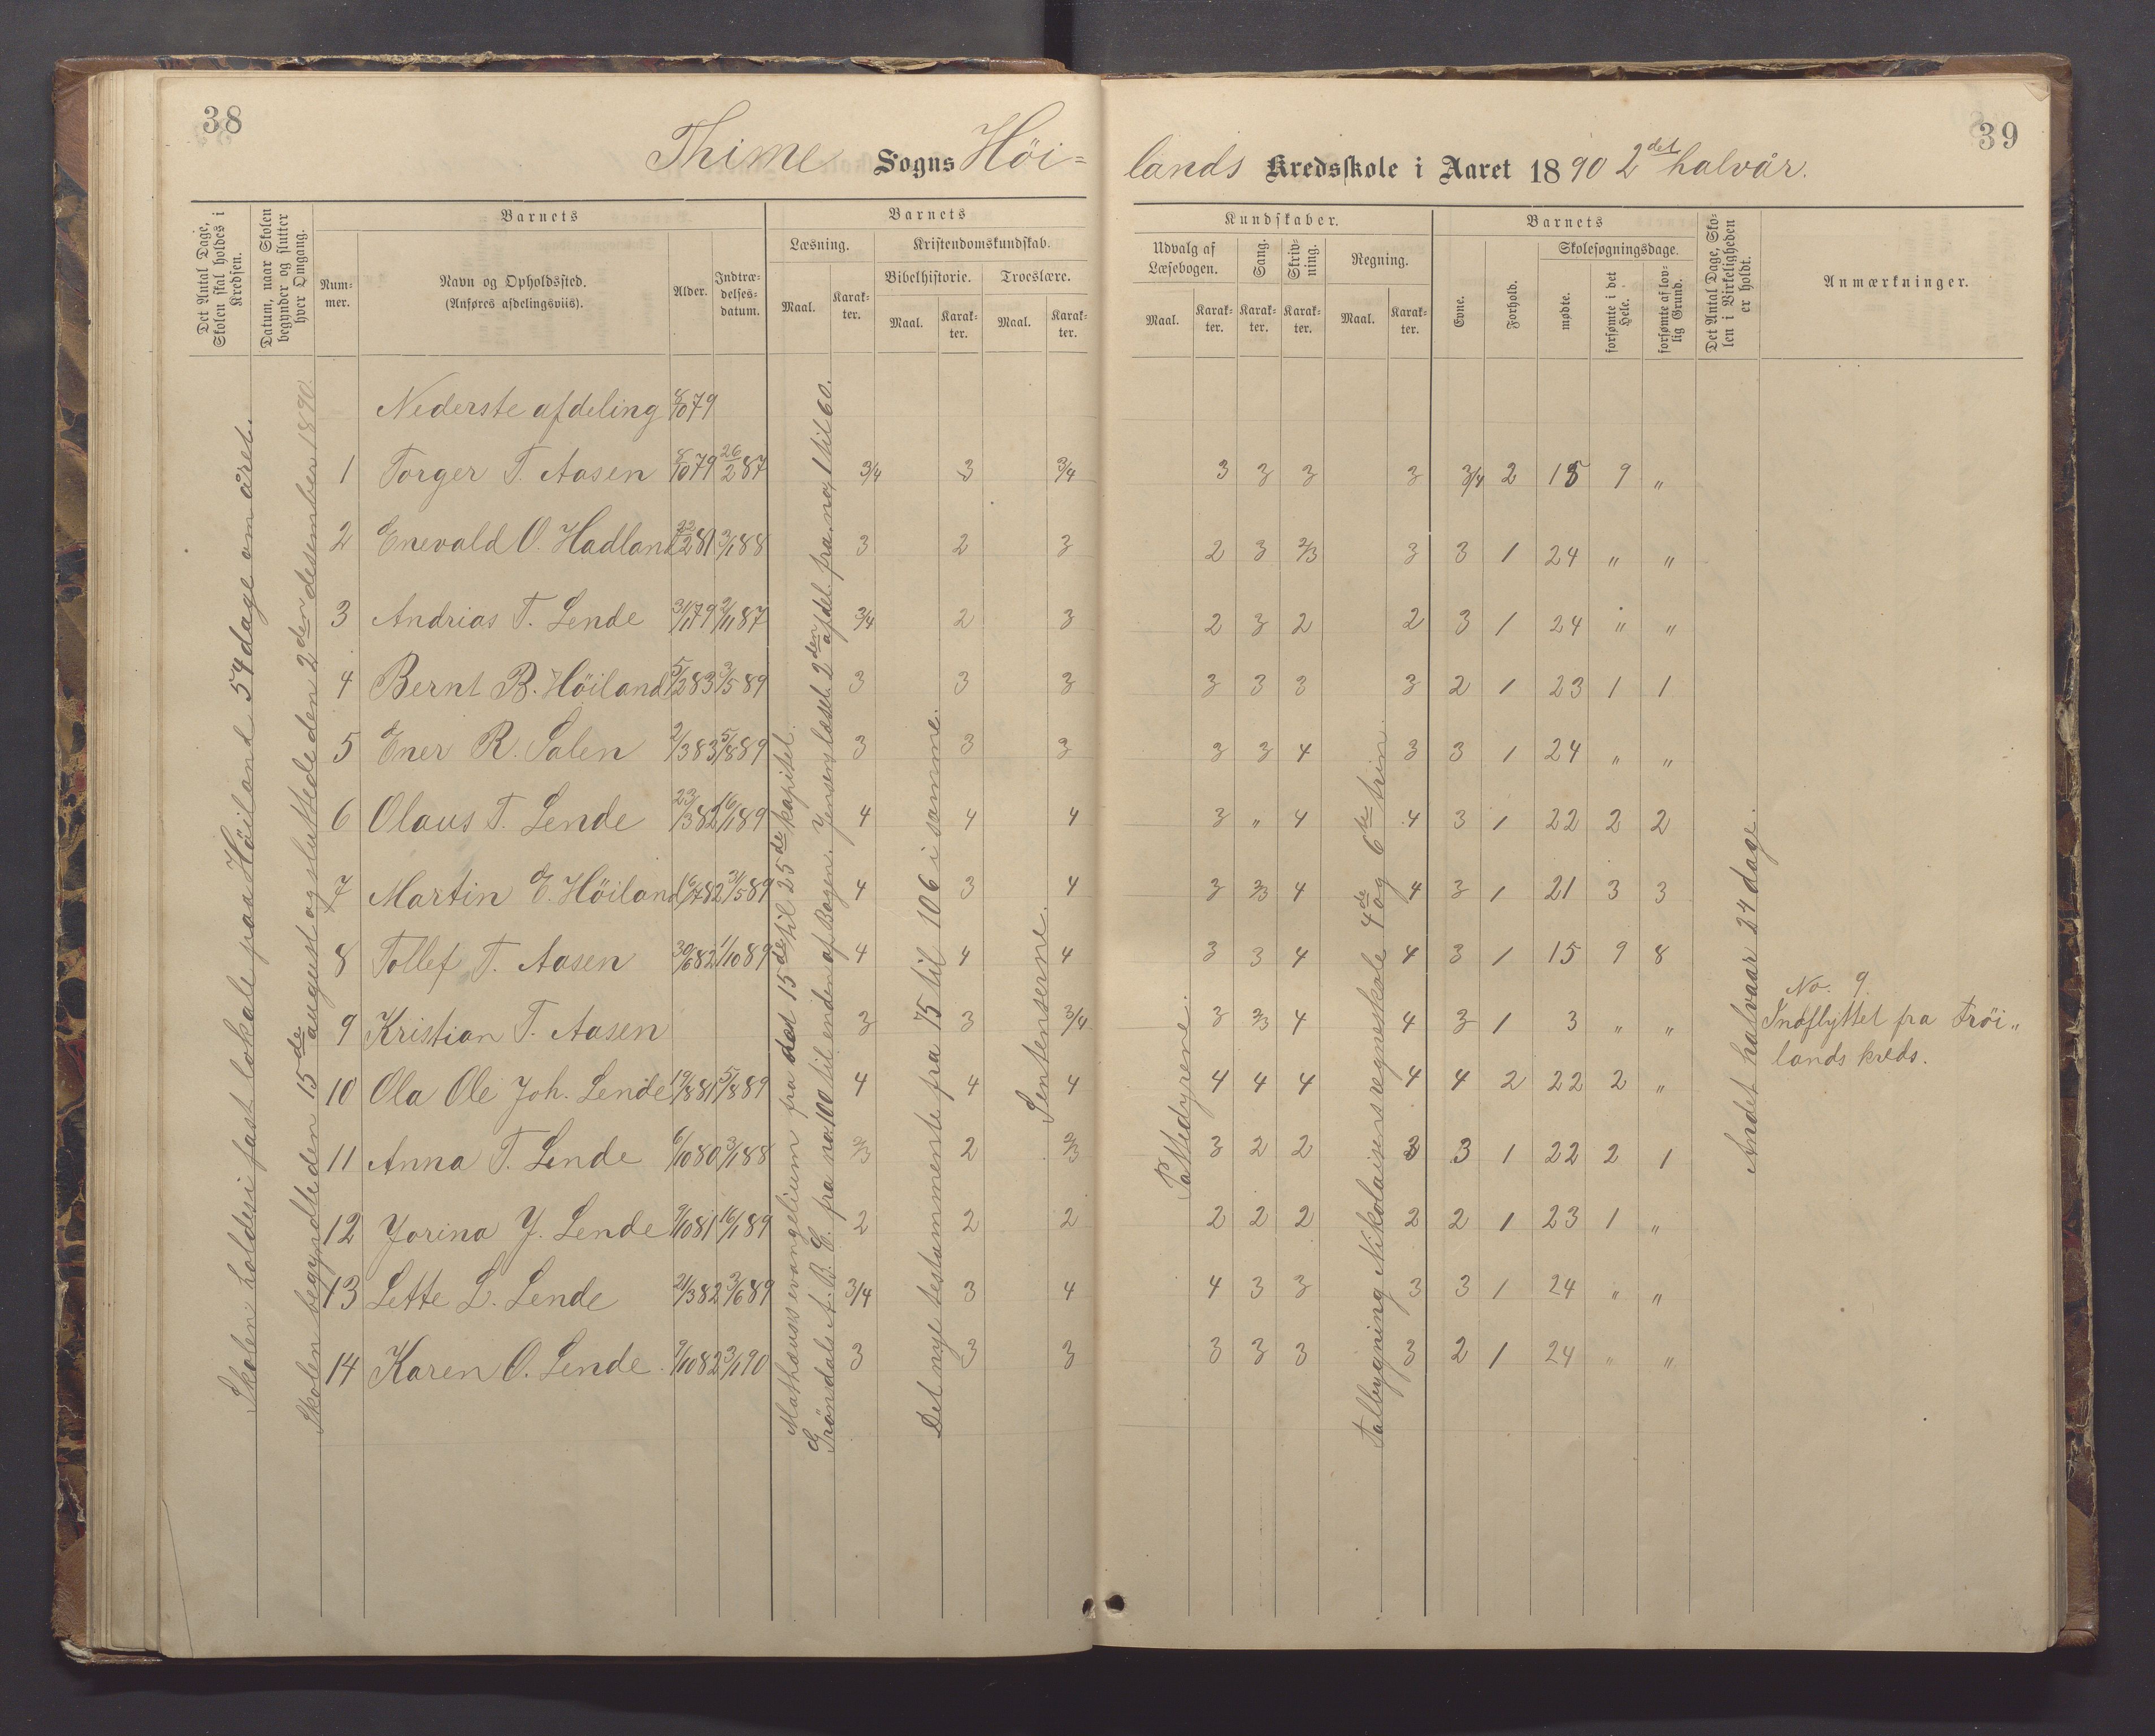 38
39
Thime Sogns Höi=
lands Kredsskole i Aaret 1890 2det halvår.
Det Antal Dage, Skolen skal holdes i Kredsen.
Datum, naar Skolen begynder og slutter hver Omgang.
Barnets
Nummer.
Navn og Opholdssted.
(Anføres afdelingsviis).
Alder.
Indtrædelsesdatum.
Barnets
Læsning.
Kristendomskundskab.
Bibelhistorie.
Troeslære.
Maal.
Karakter.
Maal.
Karakter.
Maal.
Karakter.
Kundskaber.
Udvalg af Læsebogen.
Sang.
Skrivning.
Regning.
Maal.
Karakter.
Karakter.
Karakter.
Maal.
Karakter.
Barnets
Evne.
Forhold.
Skolesøgningsdage.
mødte.
forsømte i det Hele.
forsømte af lovlig Grund.
Det Antal Dage, Skolen i Virkeligheden er holdt.
Anmærkninger.
Skolen holdes i fast lokale paa Höiland 54 dage om året.
Skolen begyndte den 15de august og sluttede den 2den desember 1890.
Mathæuss evangelium fra det 15de til 25de kapitel.
Gröndals A.B.C. fra no. 100 til enden af Bogen. Jensens læseb. 2den afdel. fra no. 1 til 60.
Det nye testammente fra 75 til 106 i samme.
Sentenserne.
Pattedyrene.
Talbygning Nikolaisens regneskole 4de og 6te trin.
Andet halvaar 24 dage.
Nederste afdeling 8/10 79
1 Torger T. Aasen 8/10 79 26/2 87 3/4 3 3/4 3 3 3 3 3/4 2 15 9 "
2 Enevald O. Hadland 22/2 81 3/1 88 3 2 3 2 3 2/3 3 3 1 24 " "
3 Andrias T. Lende 31/1 79 2/11 87 3/4 2 3 2 3 2 2 3 1 24 " "
4 Bernt B. Höiland 5/2 83 3/5 89 3 3 3 3 3 3 3 2 1 23 1 1
5 Ener R. Salen 2/3 83 5/8 89 3 3 3 3 3 4 3 3 1 24 " "
6 Olaus T. Lende 23/3 82 16/1 89 4 4 4 3 " 4 4 3 1 22 2 2
7 Martin E. Höiland 16/7 82 31/5 89 4 3 4 3 2/3 4 4 3 1 21 3 3
8 Tollef T. Aasen 30/6 82 1/10 89 4 4 4 3 3 4 4 3 1 15 9 8
9 Kristian T. Aasen 3 3 3/4 3 2/3 4 4 3 1 3 " "
No. 9.
Indflyttet fra Fröi„
lands kreds.
10 Ola Ole Joh. Lende 19/8 81 5/8 89 4 4 4 4 4 4 4 4 2 22 2 "
11 Anna T. Lende 6/10 80 3/1 88 2/3 2 2/3 3 2 2 3 3 1 22 2 1
12 Jorina J. Lende 9/10 81 16/1 89 2 2 2 2 2 2 2 2 1 23 1 "
13 Lette L. Lende 21/3 82 3/6 89 3/4 3 4 4 3 3 3 3 1 24 " "
14 Karen O. Lende 9/10 82 3/1 90 3 3 3 3 3 3 3 2 1 24 " "